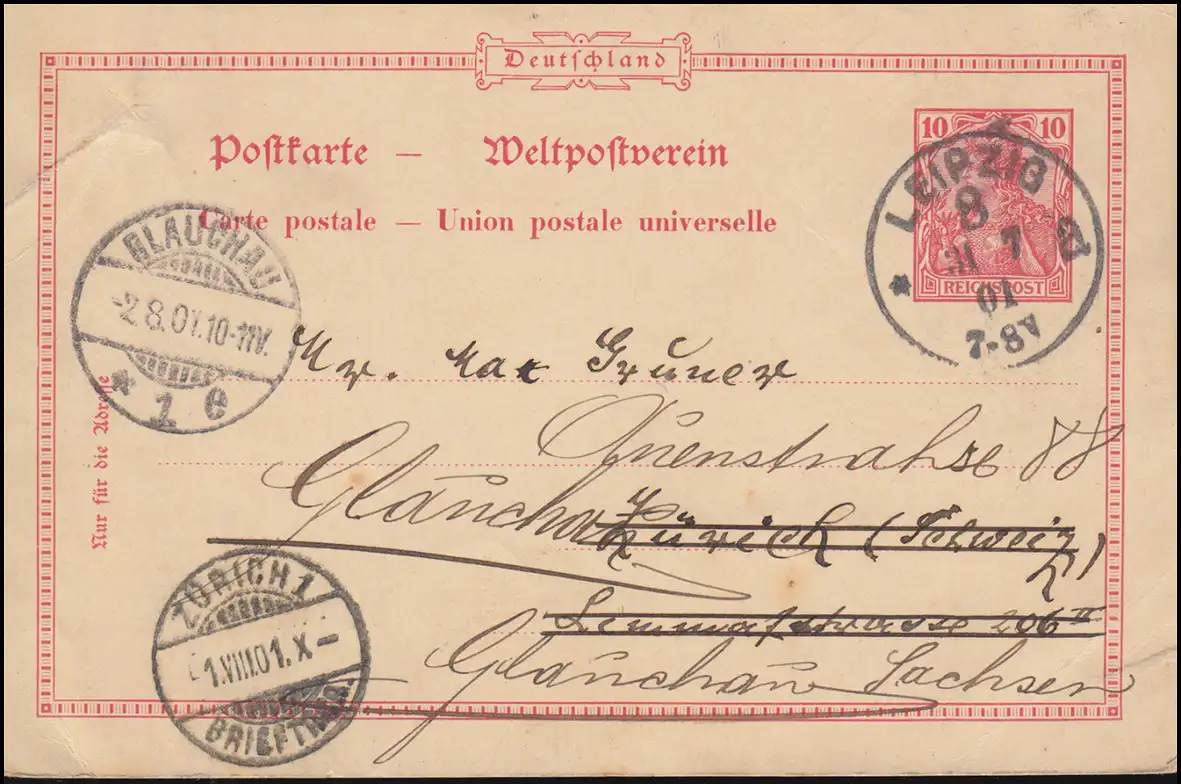 Deutschland
Postkarte — Weltpostverein
Carte postale — Union postale universelle
10 10
REICHSPOST
LEIPZIG
8
31 7
01
7-8V
GLAUCHAU
-2.8.01.10-11V.
* 1 e
Mr. Max Gruner
88
Glauchau
Zürich (Schweiz)
Limmatstrasse 206 II
Glauchau Sachsen
Nur für die Adresse
ZÜRICH 1
1.VIII.01.X-
BRIEFTRÄR.